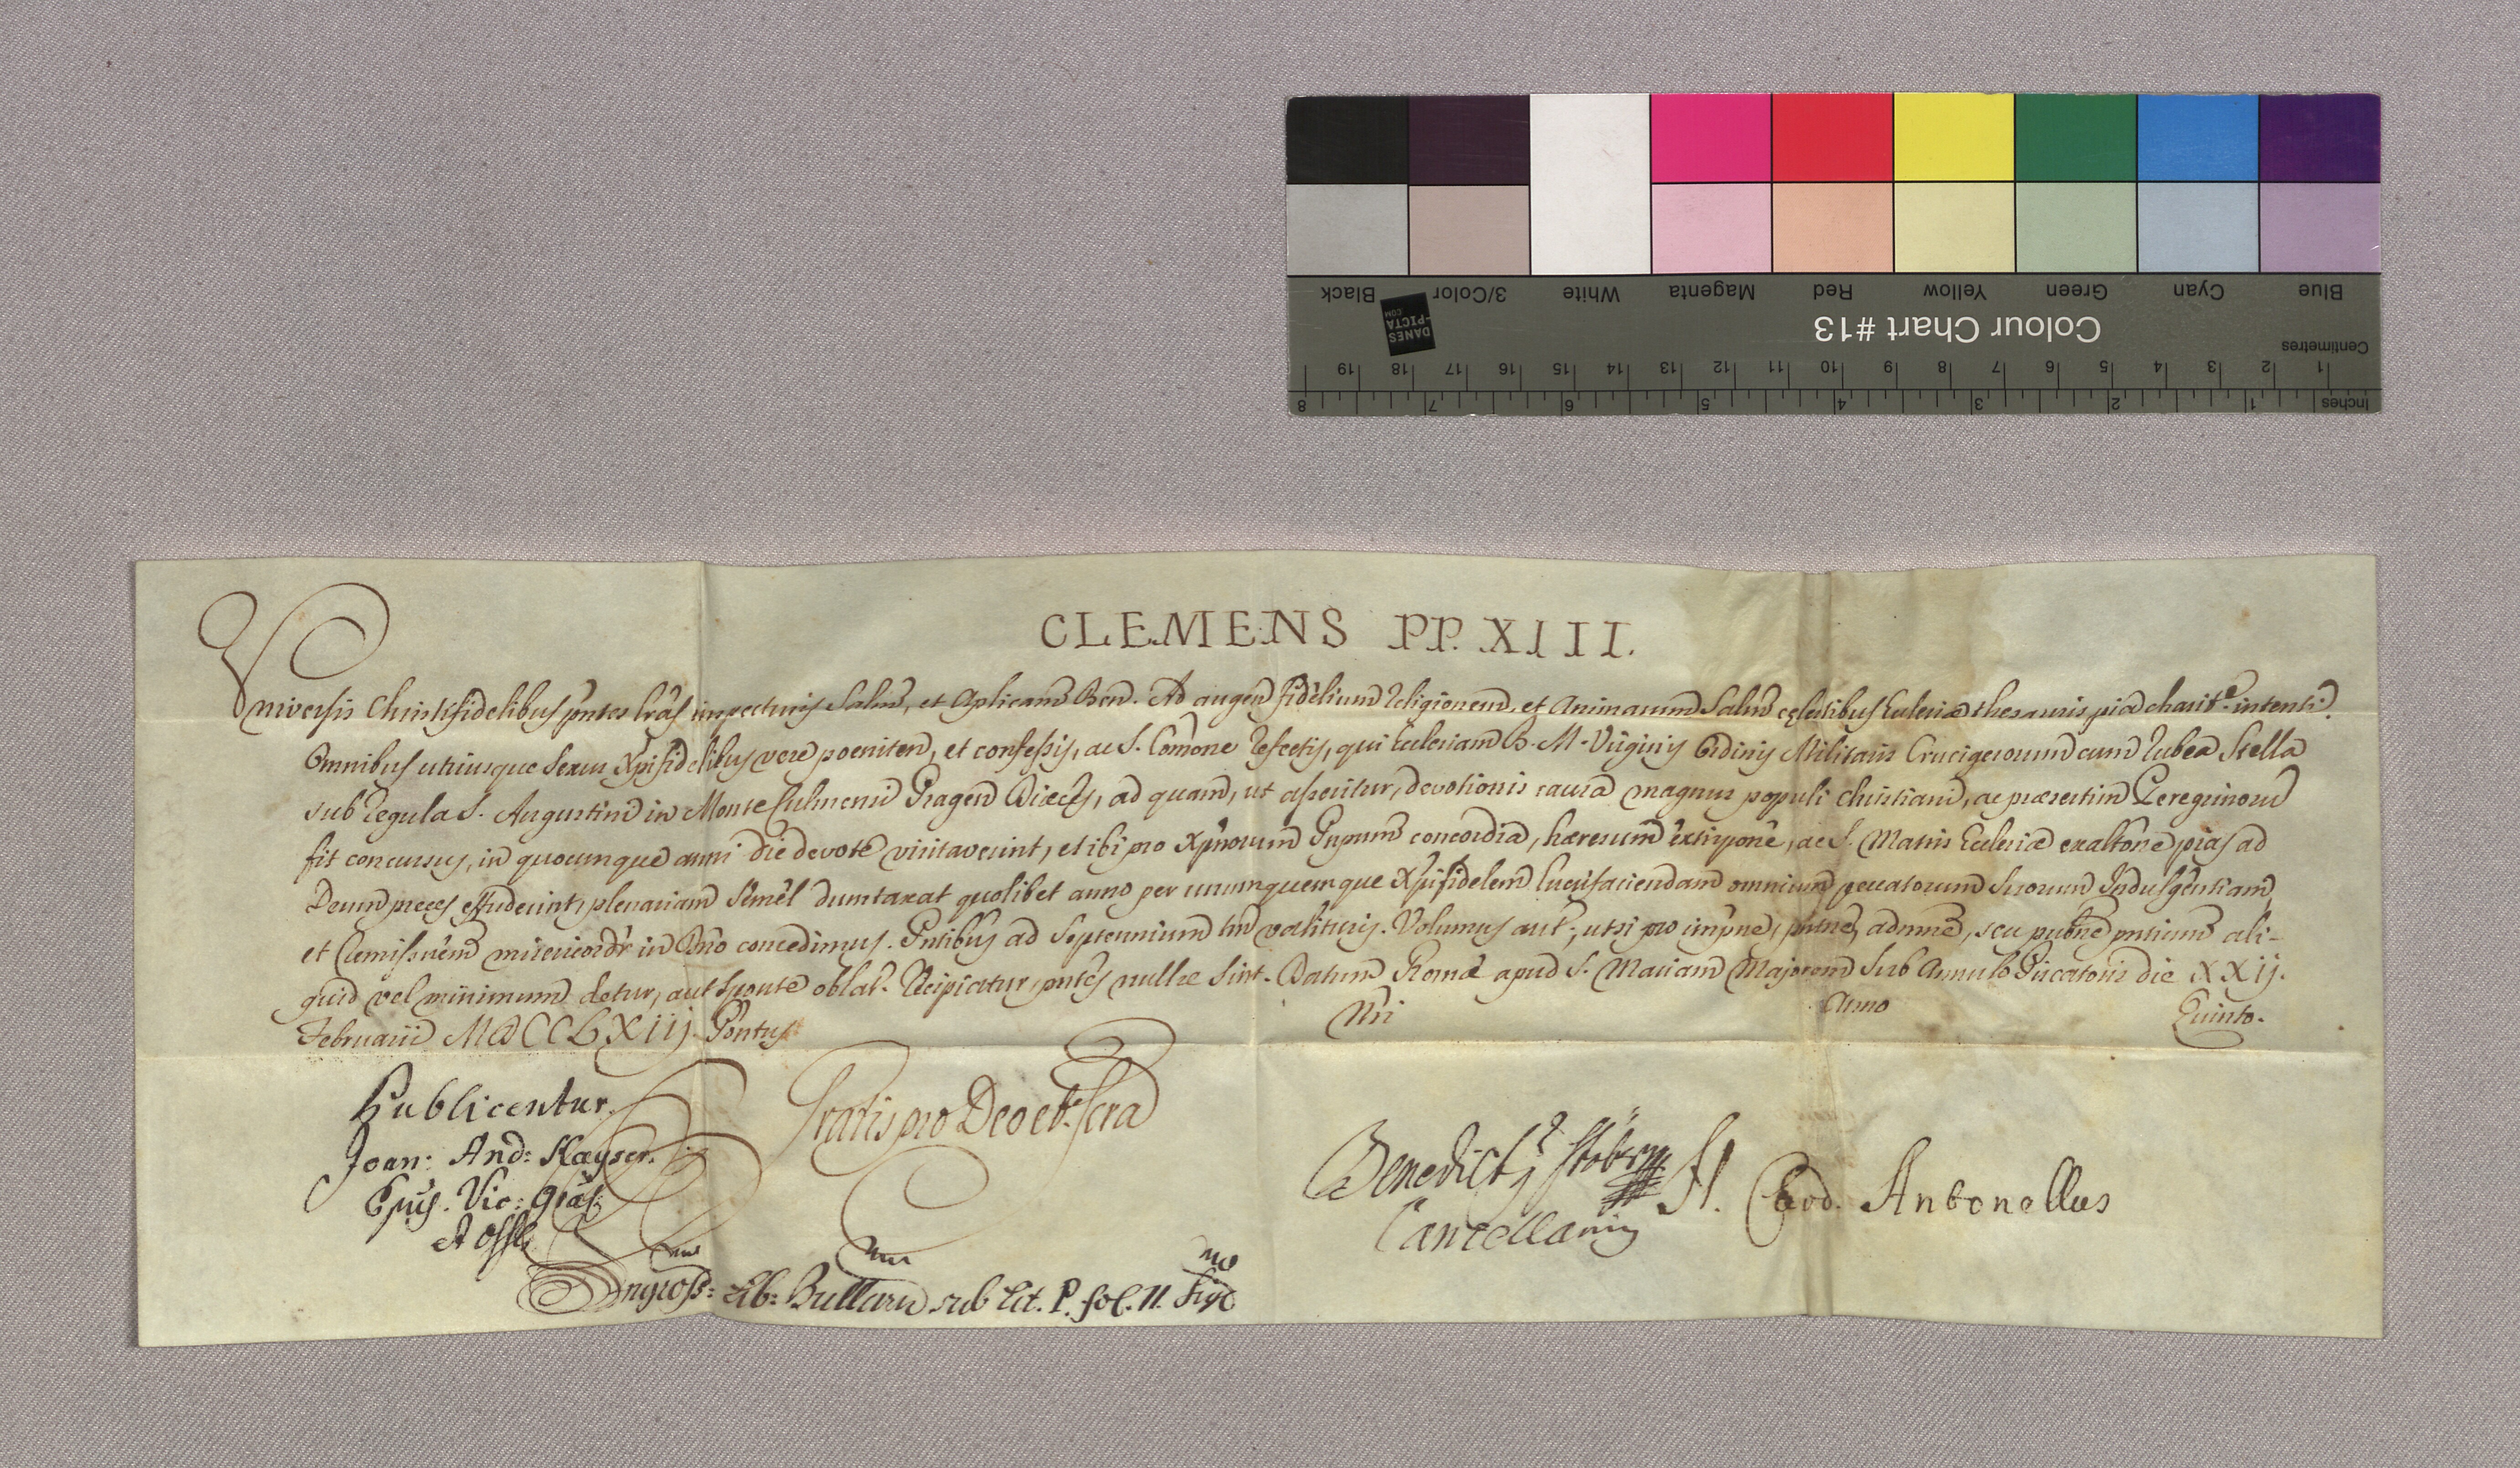 Black 3/Color White Magenta Red Yellow Green Cyan Blue
DANES
-PICTA
.COM
Colour Chart #13
Centimetres
19 18 17 16 15 14 13 12 11 10 9 8 7 6 5 4 3 2 1
8 7 6 5 4 3 2 1 Inches
CLEMENS PP. XIII.
Universis Christifidelibus pntes lras inspecturis Salm, et Aplicam Ben. Ad augen fidelium Religionem, et Animarum Salm cęlestibus Ecclesiæ thesauris pia charite. intenti.
Omnibus utriusque Sexus Xpifidelibus vere poeniten, et confessis, ac S. Comone Refectis, qui Ecclesiam B. M. Virginis Ordinis Militaris Crucigerorum cum Rubea Stella
sub Regula S. Augustini in Monte Culmensi Pragen Diæcs, ad quam, ut asseritur, devotionis causa magnus populi Christiani, ac præsertim Peregrinorum
fit concursus, in quocumque anni die devote visitaverint, et ibi pro Xpnorum Pnpum concordia, hæresum extirpone, ac S. Matris Ecclesiæ exaltone pias ad
Deum preces effuderint, plenariam Semel dumtaxat quolibet anno per unumquemque Xpifidelem lucrifaciendam omnium peccatorum suorum Indulgentiam,
et Remissnem misericordr in Dno concedimus. Pntibus ad Septennium tm valituris. Volumus aut, ut si pro impne, pntne, admne, seu pubne pntium ali-
quid vel minimum detur, aut sponte oblat. Recipiatur, pntes nullæ Sint. Datum Romæ apud S. Mariam Majorem Sub Annulo Piscatoris die XXIJ.
Februarii MDCCLXIIJ. Pontus Nri Anno Quinto.
Publicentur.
Gratis pro Deo et Scra
Joan: And: Kayser.
Epus. Vic: Gräl:
et Offls
Benedictj Stöberg
Cancellarius
A. Card. Antonellus
Ingross: Lib: Bullarum sub Lit. P. fol. 11.